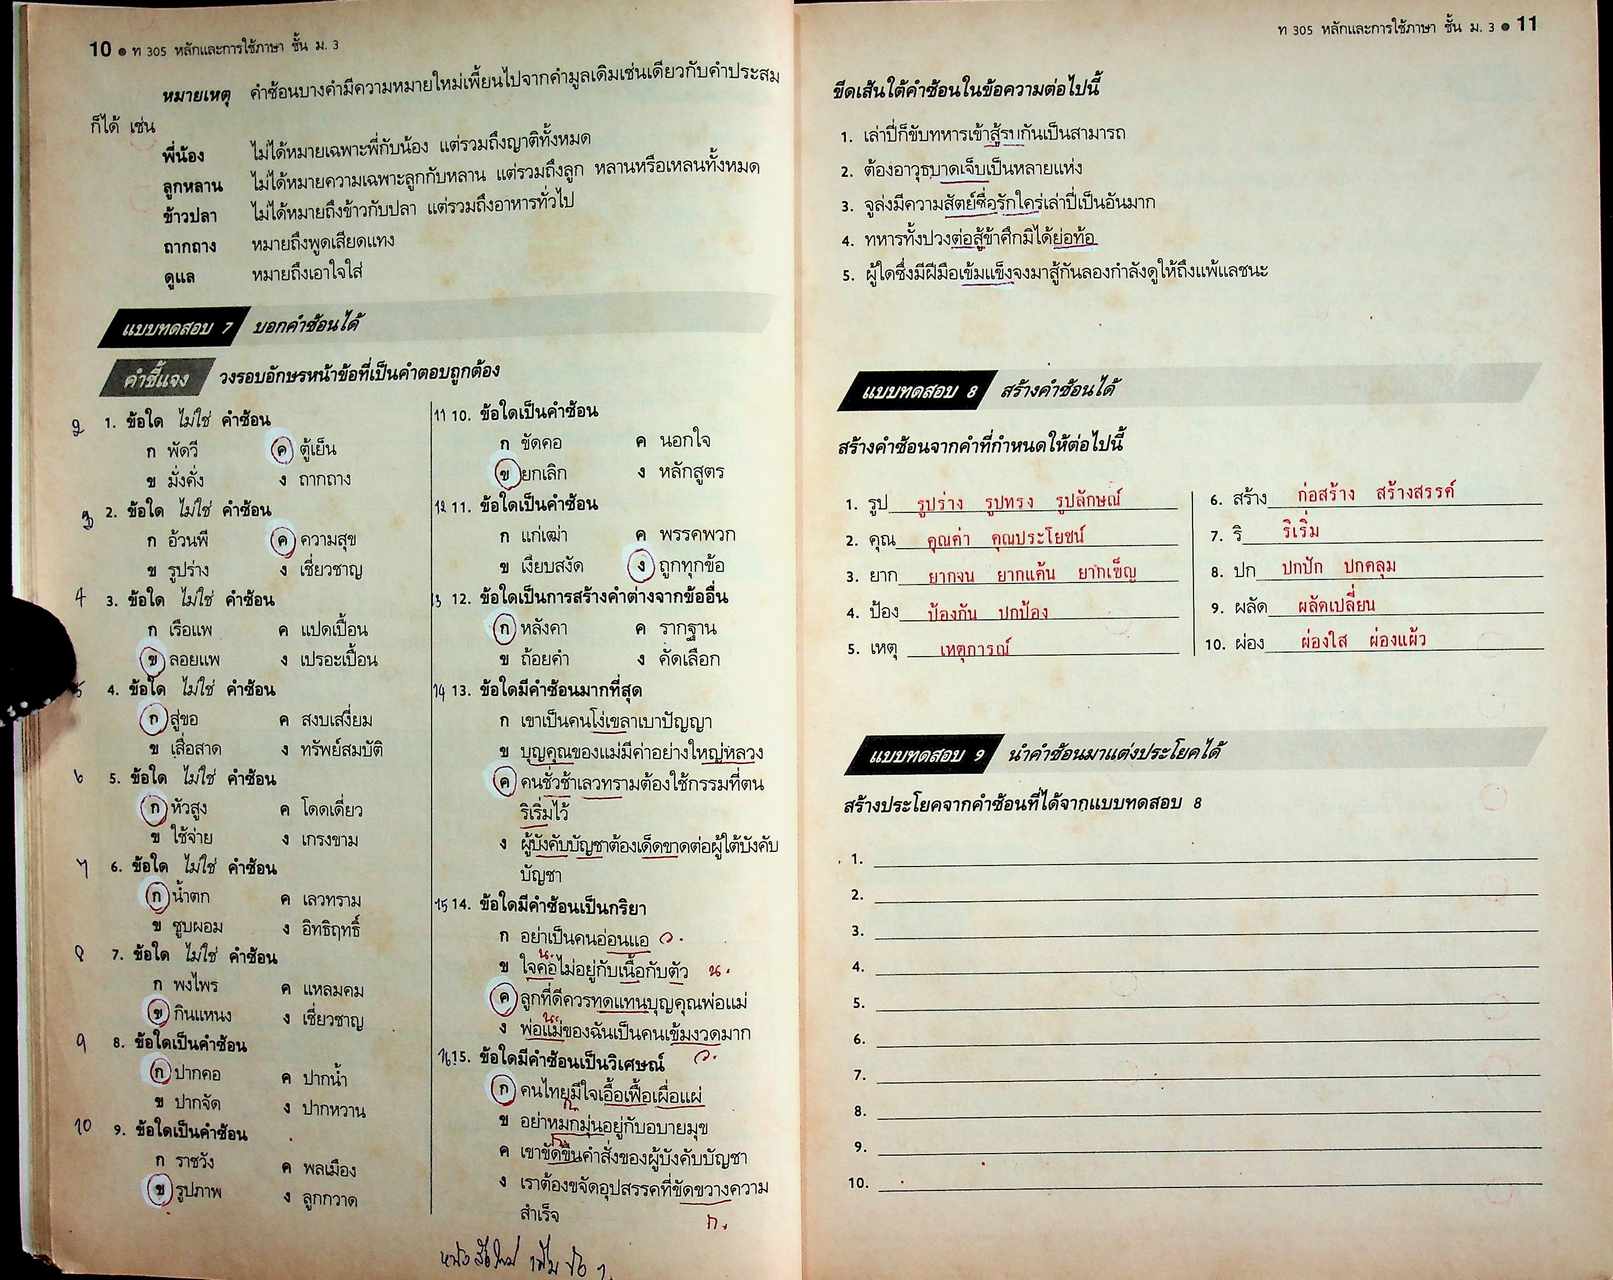 10 ● ท 305 หลักและการใช้ภาษา ชั้น ม. 3
หมายเหตุ คำซ้อนบางคำมีความหมายใหม่เพี้ยนไปจากคำมูลเดิมเช่นเดียวกับคำประสม
ก็ได้ เช่น
พี่น้อง ไม่ได้หมายเฉพาะพี่กับน้อง แต่รวมถึงญาติทั้งหมด
ลูกหลาน ไม่ได้หมายความเฉพาะลูกกับหลาน แต่รวมถึงลูก หลานหรือเหลนทั้งหมด
ข้าวปลา ไม่ได้หมายถึงข้าวกับปลา แต่รวมถึงอาหารทั่วไป
ถากถาง หมายถึงพูดเสียดแทง
ดูแล หมายถึงเอาใจใส่
แบบทดสอบ 7 บอกคำซ้อนได้
คำชี้แจง วงรอบอักษรหน้าข้อที่เป็นคำตอบถูกต้อง
2 1. ข้อใด ไม่ใช่ คำซ้อน
ก พัดวี ค ตู้เย็น
ข มั่งคั่ง ง ถากถาง
3 2. ข้อใด ไม่ใช่ คำซ้อน
ก อ้วนพี ค ความสุข
ข รูปร่าง ง เชี่ยวชาญ
4 3. ข้อใด ไม่ใช่ คำซ้อน
ก เรือแพ ค แปดเปื้อน
ข ลอยแพ ง เปรอะเปื้อน
5 4. ข้อใด ไม่ใช่ คำซ้อน
ก สู่ขอ ค สงบเสงี่ยม
ข เสื่อสาด ง ทรัพย์สมบัติ
6 5. ข้อใด ไม่ใช่ คำซ้อน
ก หัวสูง ค โดดเดี่ยว
ข ใช้จ่าย ง เกรงขาม
7 6. ข้อใด ไม่ใช่ คำซ้อน
ก น้ำตก ค เลวทราม
ข ซูบผอม ง อิทธิฤทธิ์
8 7. ข้อใด ไม่ใช่ คำซ้อน
ก พงไพร ค แหลมคม
ข กินแหนง ง เชี่ยวชาญ
9 8. ข้อใดเป็นคำซ้อน
ก ปากคอ ค ปากน้ำ
ข ปากจัด ง ปากหวาน
10 9. ข้อใดเป็นคำซ้อน
ก ราชวัง ค พลเมือง
ข รูปภาพ ง ลูกกวาด
11 10. ข้อใดเป็นคำซ้อน
ก ขัดคอ ค นอกใจ
ข ยกเลิก ง หลักสูตร
12 11. ข้อใดเป็นคำซ้อน
ก แก่เฒ่า ค พรรคพวก
ข เงียบสงัด ง ถูกทุกข้อ
13 12. ข้อใดเป็นการสร้างคำต่างจากข้ออื่น
ก หลังคา ค รากฐาน
ข ถ้อยคำ ง คัดเลือก
14 13. ข้อใดมีคำซ้อนมากที่สุด
ก เขาเป็นคนโง่เขลาเบาปัญญา
ข บุญคุณของแม่มีค่าอย่างใหญ่หลวง
ค คนชั่วช้าเลวทรามต้องใช้กรรมที่ตน
ริเริ่มไว้
ง ผู้บังคับบัญชาต้องเด็ดขาดต่อผู้ใต้บังคับ
บัญชา
15 14. ข้อใดมีคำซ้อนเป็นกริยา
ก อย่าเป็นคนอ่อนแอ ว.
น.
ข ใจคอไม่อยู่กับเนื้อกับตัว น.
ค ลูกที่ดีควรทดแทนบุญคุณพ่อแม่
น.
ง พ่อแม่ของฉันเป็นคนเข้มงวดมาก
ว.
16 15. ข้อใดมีคำซ้อนเป็นวิเศษณ์
ก คนไทยมีใจเอื้อเฟื้อเผื่อแผ่
ก.
ข อย่าหมกมุ่นอยู่กับอบายมุข
ค เขาขัดขืนคำสั่งของผู้บังคับบัญชา
ง เราต้องขจัดอุปสรรคที่ขัดขวางความ
สำเร็จ
ก.
ท 305 หลักและการใช้ภาษา ชั้น ม. 3 ● 11
ขีดเส้นใต้คำซ้อนในข้อความต่อไปนี้
1. เล่าปี่ก็ขับทหารเข้าสู้รบกันเป็นสามารถ
2. ต้องอาวุธบาดเจ็บเป็นหลายแห่ง
3. จูล่งมีความสัตย์ซื่อรักใคร่เล่าปี่เป็นอันมาก
4. ทหารทั้งปวงต่อสู้ข้าศึกมิได้ย่อท้อ
5. ผู้ใดซึ่งมีฝีมือเข้มแข็งจงมาสู้กันลองกำลังดูให้ถึงแพ้แลชนะ
แบบทดสอบ 8 สร้างคำซ้อนได้
สร้างคำซ้อนจากคำที่กำหนดให้ต่อไปนี้
1. รูป รูปร่าง รูปทรง รูปลักษณ์
2. คุณ คุณค่า คุณประโยชน์
3. ยาก ยากจน ยากแค้น ยากเข็ญ
4. ป้อง ป้องกัน ปกป้อง
5. เหตุ เหตุการณ์
6. สร้าง ก่อสร้าง สร้างสรรค์
7. ริ ริเริ่ม
8. ปก ปกปัก ปกคลุม
9. ผลัด ผลัดเปลี่ยน
10. ผ่อง ผ่องใส ผ่องแผ้ว
แบบทดสอบ 9 นำคำซ้อนมาแต่งประโยคได้
สร้างประโยคจากคำซ้อนที่ได้จากแบบทดสอบ 8
1.
2.
3.
4.
5.
6.
7.
8.
9.
10.